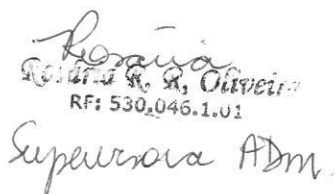 Rosária
Rosária R. R. Oliveira
RF: 530.046.1.01
Supervisora ADM.